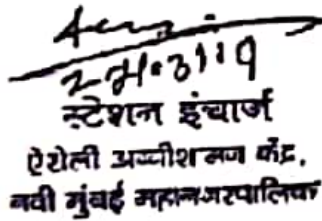 स्टेशन इंचार्ज
ऐरोली अग्नीशमन केंद्र,
नवी मुंबई महानगरपालिका